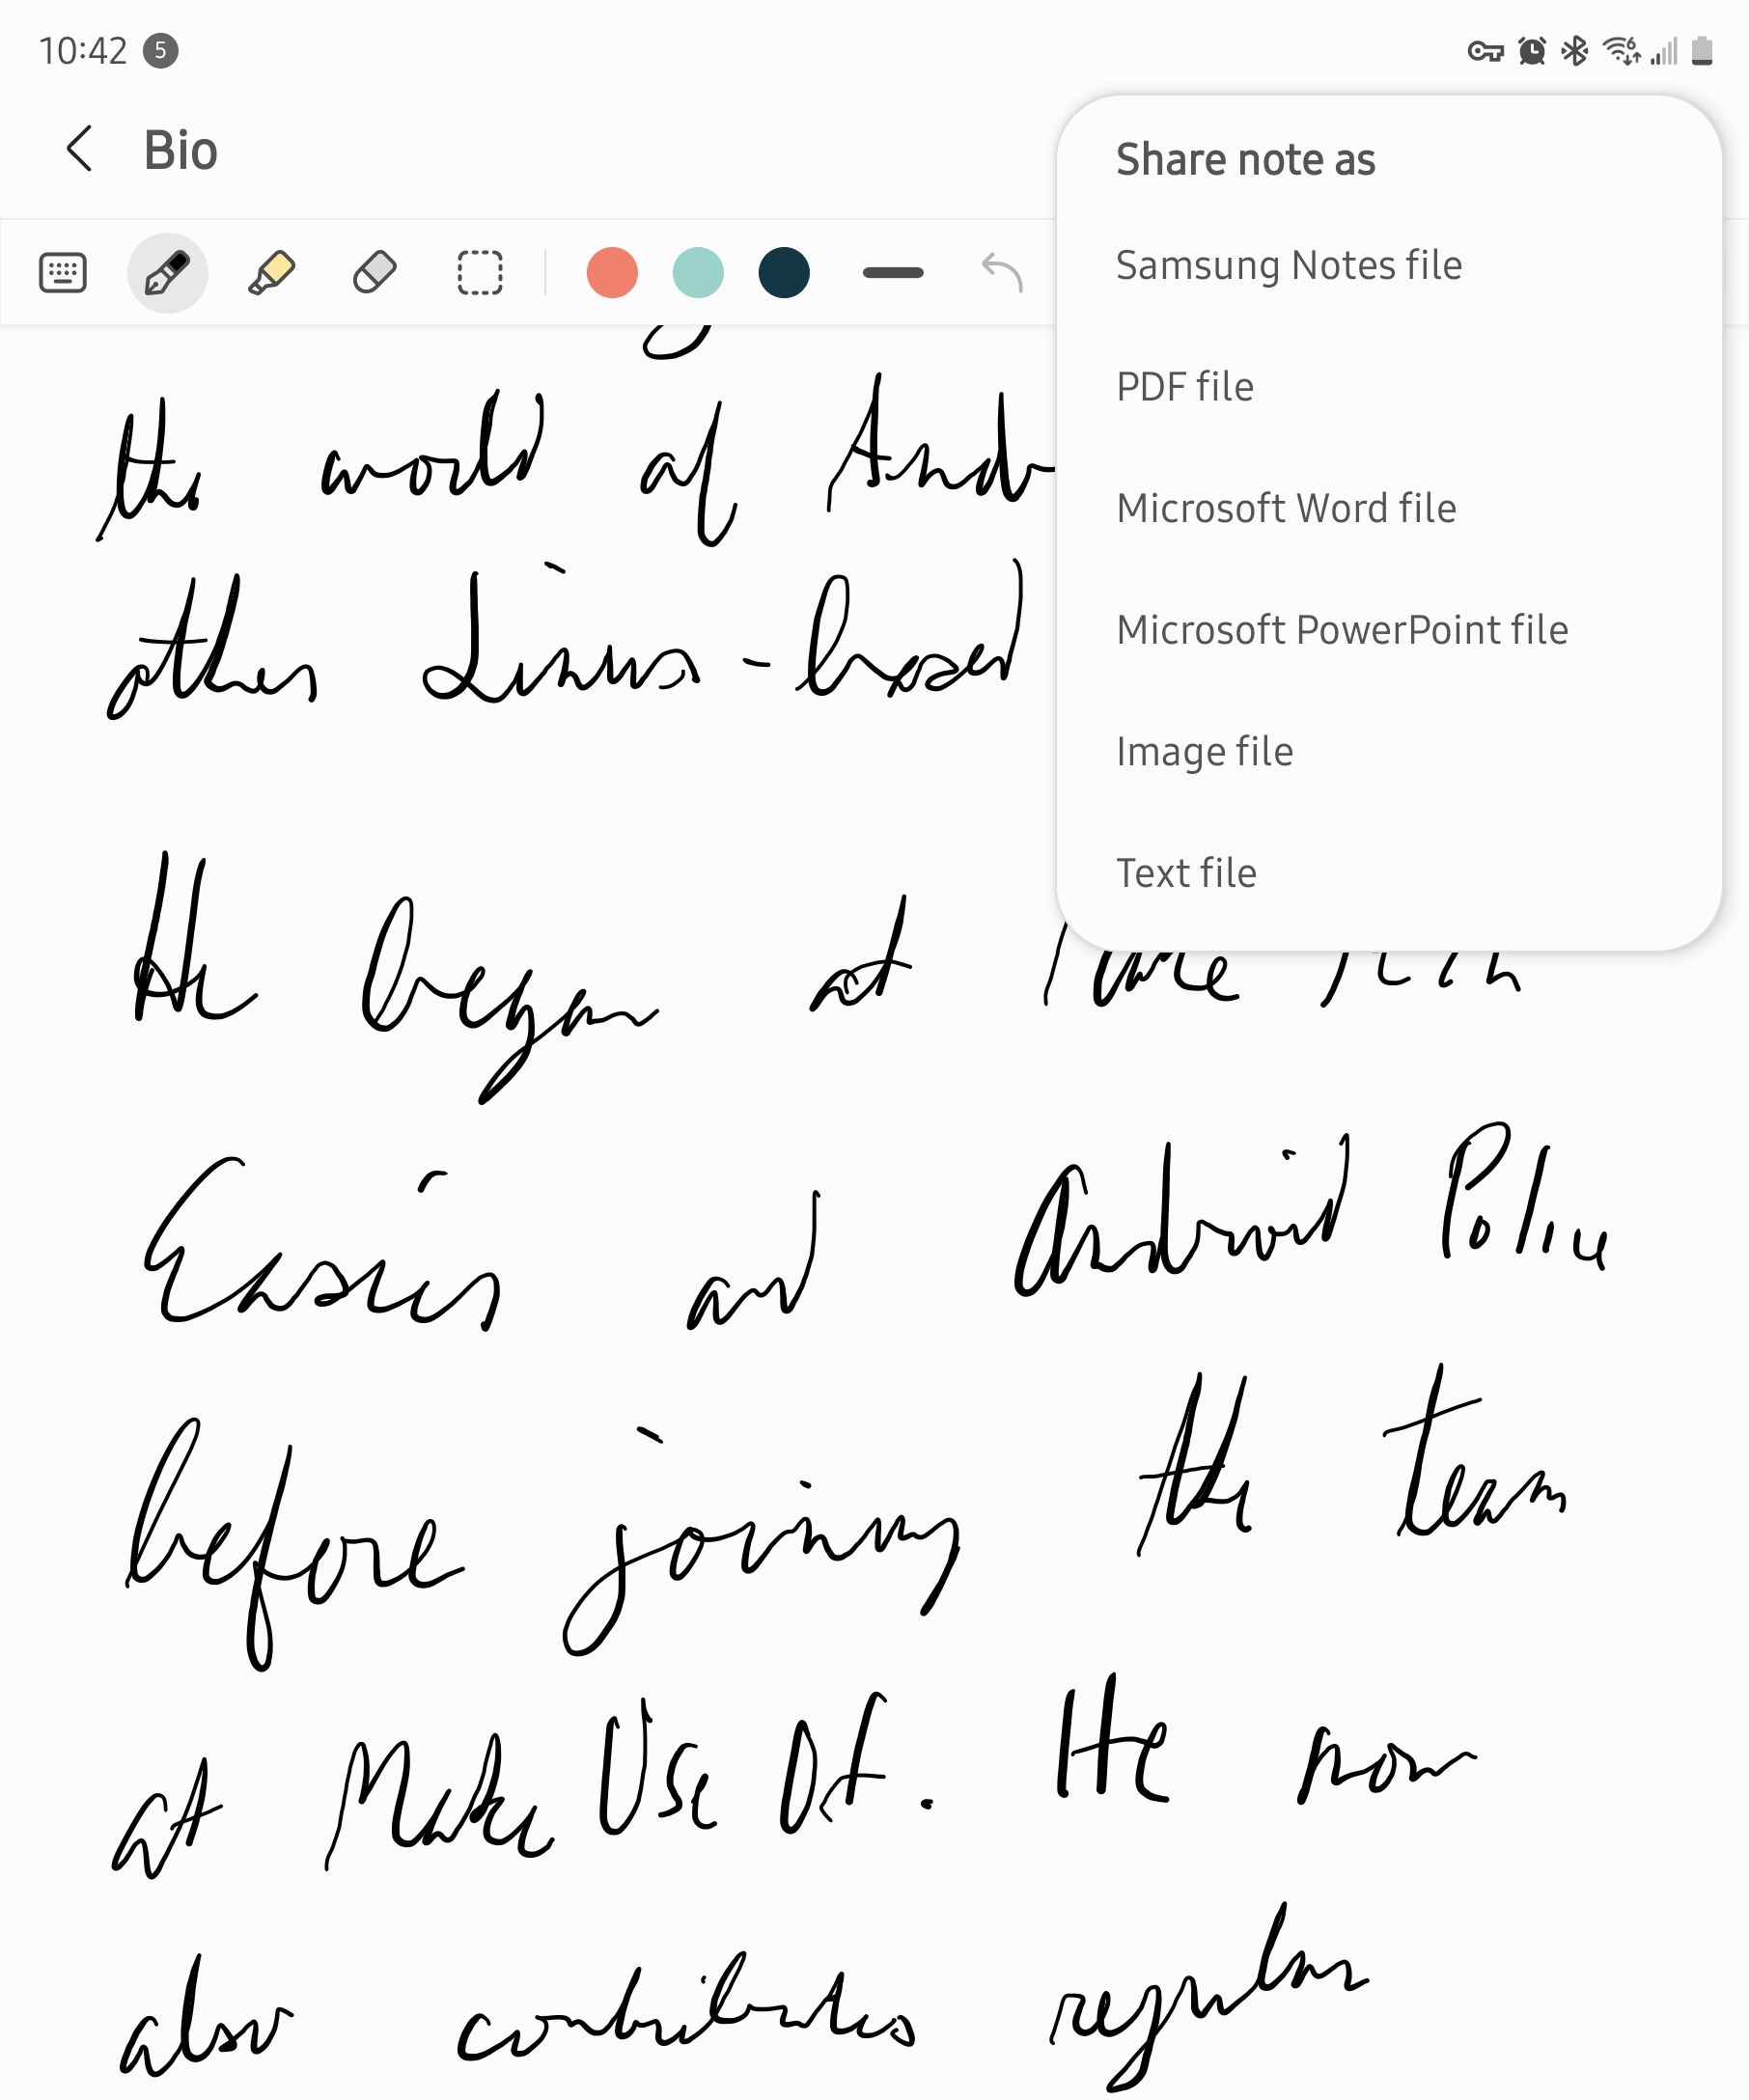 10:42 5
Bio
Share note as
Samsung Notes file
PDF file
Microsoft Word file
Microsoft PowerPoint file
Image file
Text file
the world of And
other Linux-based
He began at Make Tech
Easier and Android Police
before joining the team
at Make Use Of. He now
also contributes regular